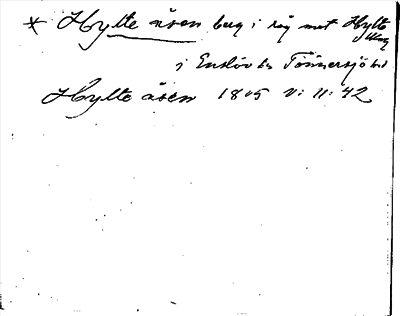 * Hylte åsen berg i rå mot Hylte
i Enslöv sn Tönnersjö hd
Hylte åsen 1805 V: 11: 42